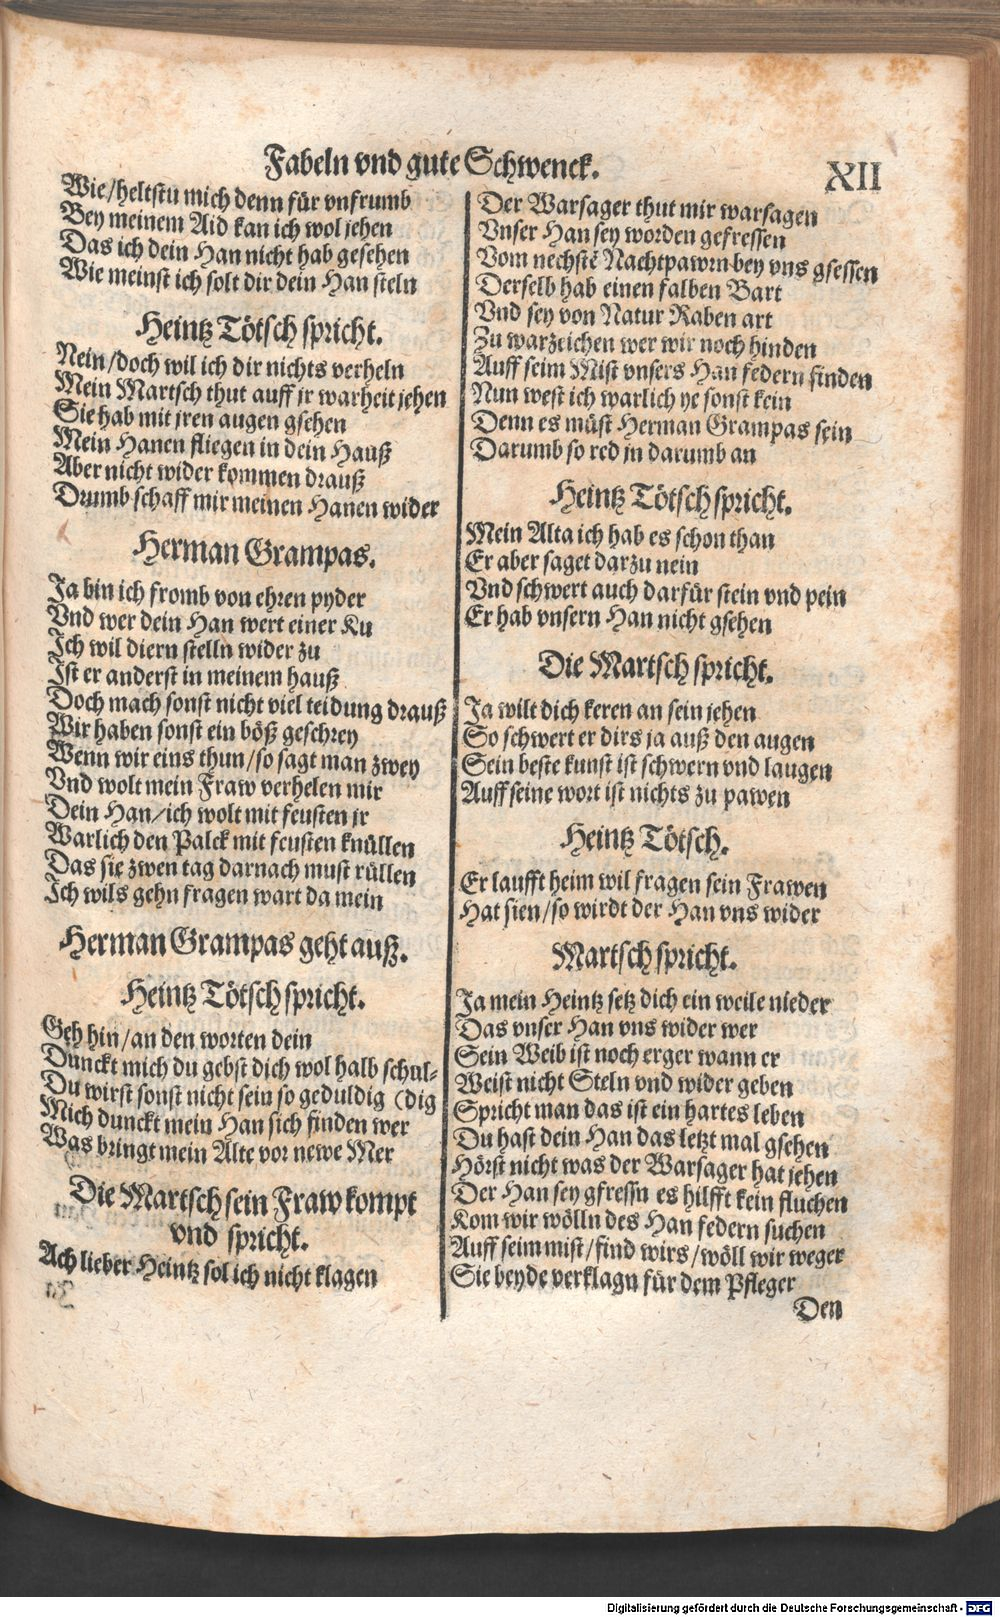 Fabeln vnd gute Schwenck.
XII
Wie/heltstu mich denn für vnfrumb
Bey meinem Aid kan ich wol jehen
Das ich dein Han nicht hab gesehen
Wie meinst ich solt dir dein Han steln
Heintz Tötsch spricht.
Nein/doch wil ich dir nichts verheln
Mein Martsch thut auff jr warheit jehen
Sie hab mit jren augen gsehen
Mein Hanen fliegen in dein Hauß
Aber nicht wider kommen drauß
Drumb schaff mir meinen Hanen wider
Herman Grampas.
Ja bin ich fromb von ehren pyder
Vnd wer dein Han wert einer Ku
Ich wil diern stelln wider zu
Ist er anderst in meinem hauß
Doch mach sonst nicht viel teidung drauß
Wir haben sonst ein böß geschrey
Wenn wir eins thun/so sagt man zwey
Vnd wolt mein Fraw verhelen mir
Dein Han/ich wolt mit feusten jr
Warlich den Palck mit feusten knüllen
Das sie zwen tag darnach must rüllen
Ich wils gehn fragen wart da mein
Herman Grampas geht auß.
Heintz Tötsch spricht.
Geh hin/an den worten dein
Dunckt mich du gebst dich wol halb schul-
Du wirst sonst nicht sein so geduldig (dig
Mich dunckt mein Han sich finden wer
Was bringt mein Alte vor newe Mer
Die Martsch sein Fraw kompt
vnd spricht.
Ach lieber Heintz sol ich nicht klagen
Der Warsager thut mir warsagen
Vnser Han sey worden gefressen
Vom nechstē Nachtpawrn bey vns gsessen
Derselb hab einen falben Bart
Vnd sey von Natur Raben art
Zu warzeichen wer wir noch hinden
Auff seim Mist vnsers Han federn finden
Nun west ich warlich ye sonst kein
Denn es müst Herman Grampas sein
Darumb so red jn darumb an
Heintz Tötsch spricht.
Mein Alta ich hab es schon than
Er aber saget darzu nein
Vnd schwert auch darfür stein vnd pein
Er hab vnsern Han nicht gsehen
Die Martsch spricht.
Ja wilt dich keren an sein jehen
So schwert er dirs ja auß den augen
Sein beste kunst ist schwern vnd laugen
Auff seine wort ist nichts zu pawen
Heintz Tötsch.
Er laufft heim wil fragen sein Frawen
Hat sien/so wirdt der Han vns wider
Martsch spricht.
Ja mein Heintz setz dich ein weile nieder
Das vnser Han vns wider wer
Sein Weib ist noch erger wann er
Weist nicht Steln vnd wider geben
Spricht man das ist ein hartes leben
Du hast dein Han das letzt mal gsehen
Hörst nicht was der Warsager hat jehen
Der Han sey gfressn es hilfft kein fluchen
Kom wir wölln des Han federn suchen
Auff seim mist/find wirs/wöll wir weger
Sie beyde verklagn für dem Pfleger
Den
Digitalisierung gefördert durch die Deutsche Forschungsgemeinschaft - DFG